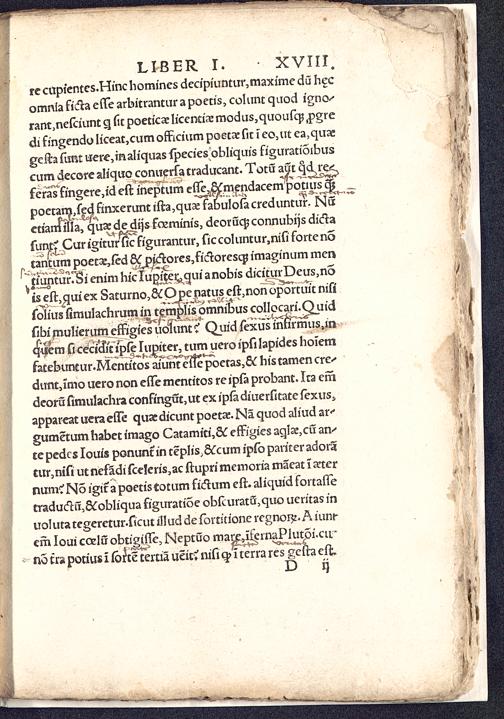 LIBER I. XVIII.
re cupientes. Hinc homines decipiuntur, maxime dũ hęc
omnia ficta esse arbitrantur a poetis, colunt quod igno-
rant, nesciunt q̃ sit poeticæ licentiæ modus, quousq; ꝓgre
di fingendo liceat, cum officium poetæ sit ĩ eo, ut ea, quæ
gesta sunt uere, in aliquas species obliquis figuratiõibus
cum decore aliquo conuersa traducant. Totũ aũt qd̃ re-
feras fingere, id est ineptum esse, & mendacem potius q̃
poetam, sed finxerunt ista, quæ fabulosa creduntur. Nũ
etiam illa, quæ de dijs fœminis, deorũq; connubijs dicta
sunt? Cur igitur sic figurantur, sic coluntur, nisi forte nõ
tantum poetæ, sed & pictores, fictoresq; imaginum men
tiuntur. Si enim hic Iupiter, qui a nobis dicitur Deus, nõ
is est, qui ex Saturno, & Ope natus est, non oportuit nisi
solius simulachrum in templis omnibus collocari. Quid
sibi mulierum effigies uolunt? Quid sexus infirmus, in
quem si cecidit ipse Iupiter, tum uero ipsi lapides hoĩem
fatebuntur. Mentitos aiunt esse poetas, & his tamen cre-
dunt, imo uero non esse mentitos re ipsa probant. Ita em̃
deorũ simulachra confingũt, ut ex ipsa diuersitate sexus,
appareat uera esse quæ dicunt poetæ. Nã quod aliud ar-
gumẽtum habet imago Catamiti, & effigies aq̃læ, cũ an-
te pedes Iouis ponunt̃ in tẽplis, & cum ipso pariter adorã
tur, nisi ut nefãdi sceleris, ac stupri memoria mãeat ĩ æter
num? Nõ igit̃ a poetis totum fictum est. aliquid fortasse
traductũ, & obliqua figuratiõe obscuratũ, quo ueritas in
uoluta tegeretur. sicut illud de sortitione regnoꝝ. Aiunt
em̃ Ioui cœlũ obtigisse, Neptũo mare, ĩferna Plutõi. cu-
nõ t̃ra potius ĩ sortẽ tertiã uẽit? nisi q̃ ĩ terra res gesta est.
D ij